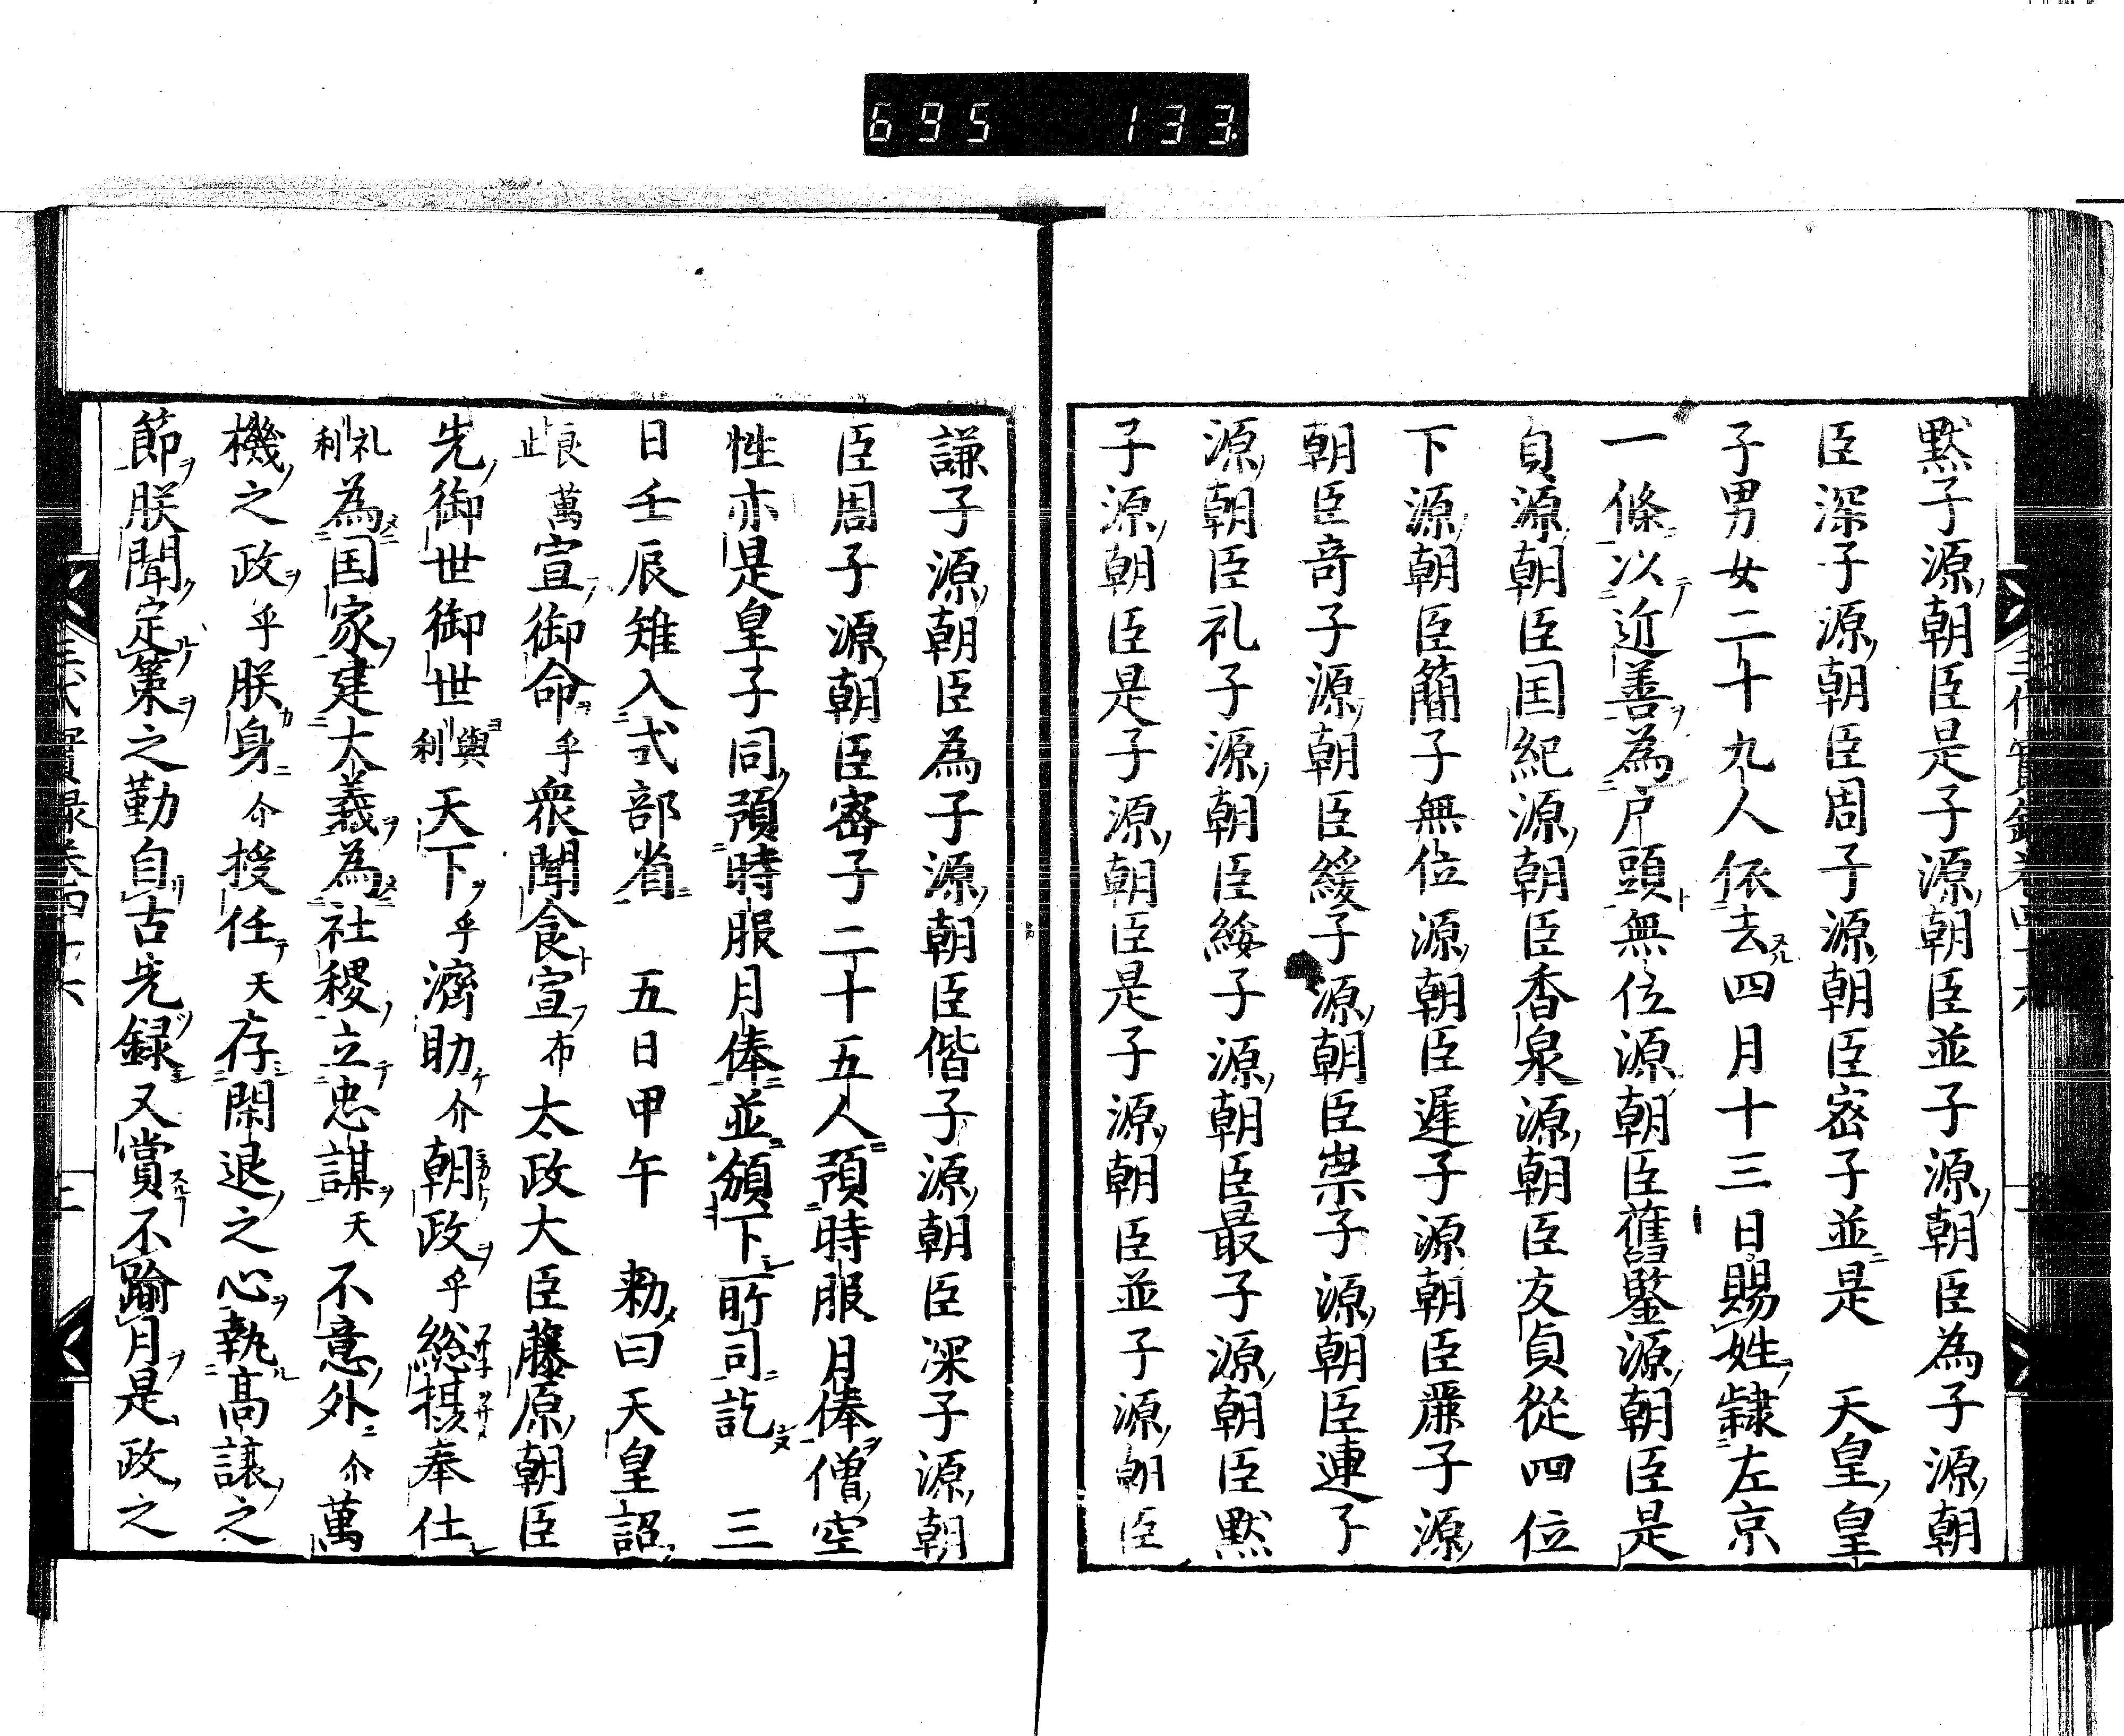 695 133
黙子源朝臣是子源朝臣並子源朝臣為子源朝
臣深子源朝臣周子源朝臣宻子並是 天皇皇
子男女二十九人依去四月十三日賜姓隷左京
一條以近善為戸頭無位源朝臣舊鑒源朝臣是
貞源朝臣国紀源朝臣香泉源朝臣友貞從四位
下源朝臣簡子無位源朝臣遅子源朝臣䕠子源
朝臣竒子源朝臣緩子源朝臣崇子源朝臣連子
源朝臣礼子源朝臣綏子源朝臣最子源朝臣黙
子源朝臣是子源朝臣是子源朝臣並子源朝臣
謙子源朝臣為子源朝臣偕子源朝臣深子源朝
臣周子源朝臣宻子二十五人預時服月俸僧空
性亦是皇子同預時服月俸並頒下所司訖 三
日壬辰雉入式部省 五日甲午 勅曰天皇詔
良止萬宣御命乎衆聞食宣布太政大臣藤原朝臣
先御世御世與利天下乎濟助介朝政乎総摂奉仕
礼利為国家建大義為社稷立忠謀天不意外尒萬
機之政乎朕身介授任天存閑退之心執高譲之
節朕聞定策之勤自古先録又賞不踰月是政之
三代實録巻四十六 二